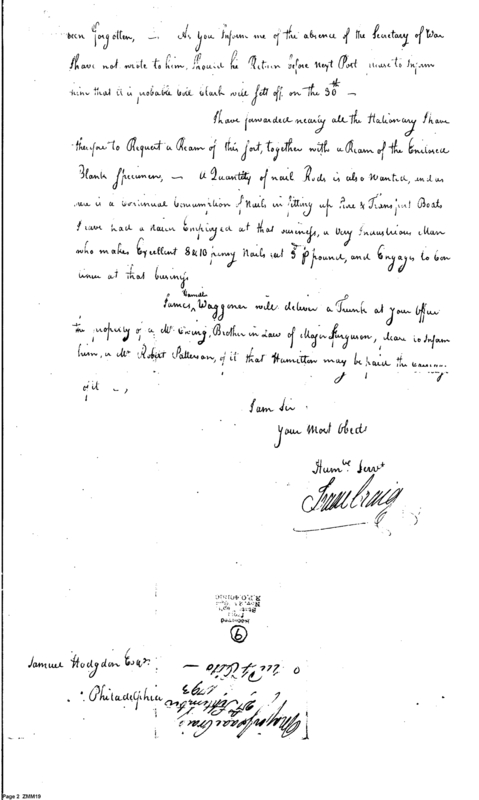 been Forgotten, — As you Inform me of the absence of the Secretary of War
I have not wrote to him, Should he Return before next Post please to Inform
him that it is probable Coll Clark will sett off on the 30th —
I have forwarded nearly all the Stationary I have
therefore to Request a Ream of this sort, together with a Ream of the Enclosed
Blank Specimen, — A Quantity of nail Rods is also Wanted, and as
there is a Continual Consumption of Nails in fitting up & Transport Boats
I have had a Employed at that business, a very Industrious Man
who makes Excellent 8 & 10 penny Nails at P pound, and Engages to Con
tinue at that business
James Hamill Waggoner will deliver a Trunk at your Office
the property of a Mr. Ewing, Brother in Law of Major Ferguson, please to Inform
him, a Mr Robert Patterson, of it that Hamilton may be paid the carriage
of it —,
I am Sir
Your Most Obedt
Humble Servt
Isaac Craig
9
Samuel Hodgdon Esqr
Philadelphia
Major Isaac Craig
1793
Page 2 ZMM19